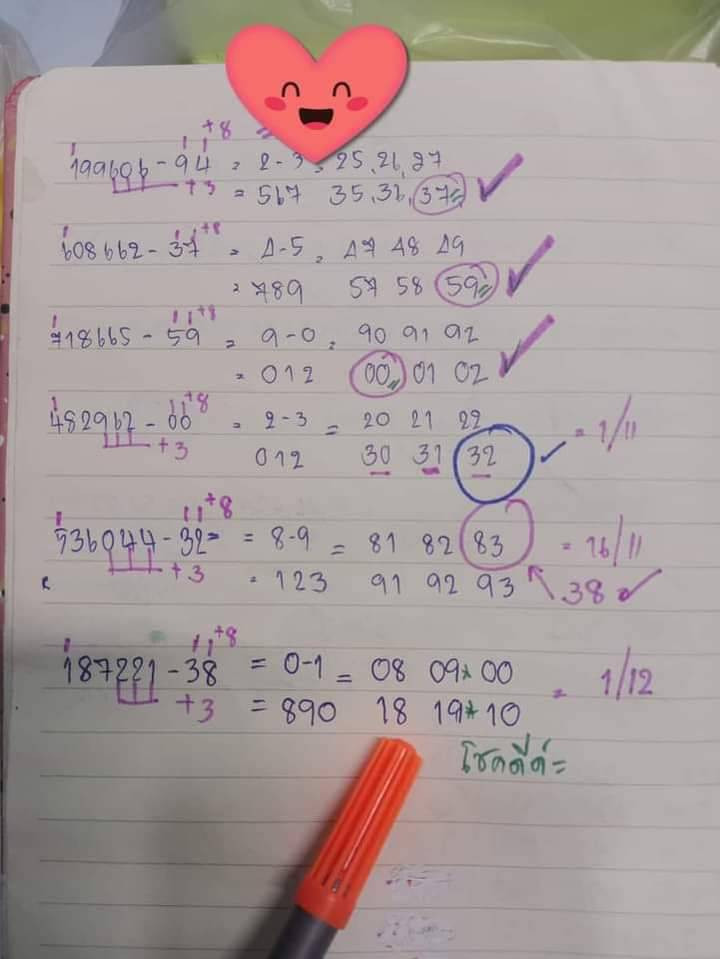 +8 =
199606 - 94 = 2-3, 25, 26, 27
+3 = 567 35, 36, 37
+8
608662 - 37 = 4-5, 47 48 49
= 789 57 58 59
+8
718665 - 59 = 9-0, 90 91 92
= 012 00 01 02
+8
482962 - 00 = 2-3 = 20 21 22 = 1/11
+3 012 30 31 32
+8
536044 - 32 = 8-9 = 81 82 83 = 16/11
+3 = 123 91 92 93 38
+8
187221 - 38 = 0-1 = 08 09* 00 = 1/12
+3 = 890 18 19* 10
โชคดีค่ะ